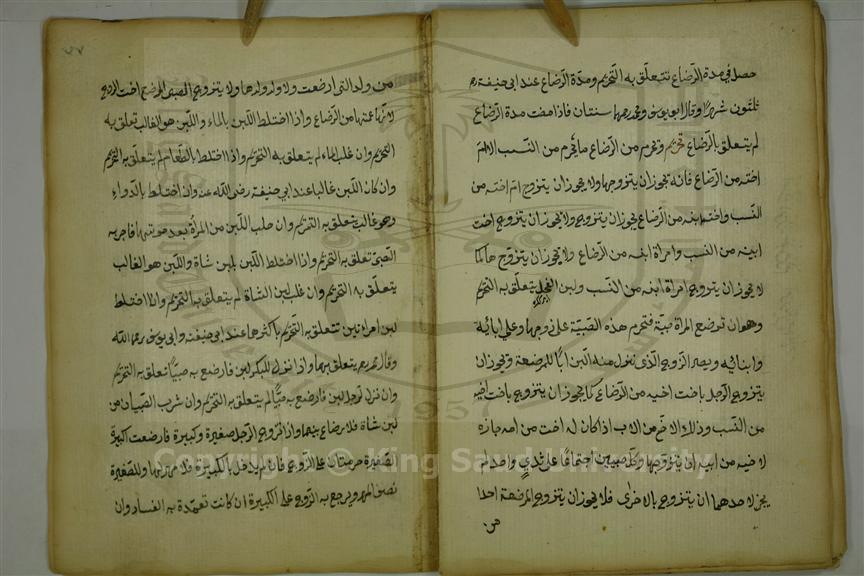 حصل في مدة الرضاع تتعلق به التحريم ومدة الرضاع عند ابي حنيفة رح
ثلثون شهرا وقال ابو يوسف ومحمد رحمهما سنتان فاذا مضت مدة الرضاع
لم يتعلق بالرضاع تحريم ويحرم من الرضاع ما يحرم من النسب الا ام
اخته من الرضاع فانه يجوز ان يتزوجها ولا يجوز ان يتزوج ام اخته من
النسب واخت ابنه من الرضاع يجوز ان يتزوج ولا يجوز ان يتزوج اخت
ابنه من النسب وامراة ابنه من الرضاع ولا يجوز ان يتزوج ها كما
لا يجوز ان يتزوج امراة ابنه من النسب ولبن الفحل يتعلق به التحريم
وهو ان ترضع المراة صبية فتحرم هذه الصبية على زوجها وعلى ابائه
وابنائه ويصير الزوج الذي نزل منه اللبن ابا للمرضعة ويجوز ان
يتزوج الرجل باخت اخيه من الرضاع كما يجوز ان يتزوج باخت اخيه
من النسب وذلك الاخ من الاب اذا كان له اخت من امه جاز
لاخيه من ابيه ان يتزوجها وكل صبيين اجتمعا على ثدي واحد لم
يجز لاحدهما ان يتزوج بالاخرى فلا يجوز ان يتزوج المرضعة احدا
من
من ولد التي ارضعت ولا ولد ولدها ولا يتزوج الصبي المرضع اخت الزوج
لانها عمته من الرضاع واذا اختلط اللبن بالماء واللبن هو الغالب تعلق به
التحريم وان غلب الماء لم يتعلق به التحريم واذا اختلط بالطعام لم يتعلق به التحريم
وان كان اللبن غالبا عند ابي حنيفة رضي الله عنه وان اختلط بالدواء
وهو غالب يتعلق به التحريم وان حلب اللبن من المرأة بعد موتها فاوجر به
الصبي تعلق به التحريم واذا اختلط اللبن بلبن شاة واللبن هو الغالب
يتعلق به التحريم وان غلب لبن الشاة لم يتعلق به التحريم واذا اختلط
لبن امراتين تتعلق به التحريم باكثرها عند ابي حنيفة وابي يوسف رحمهما الله
وقال محمد رح يتعلق بهما واذا نزل للبكر لبن فارضع به صبيا تعلق به التحريم
وان نزل لرجل لبن فارضع به صبيا لم يتعلق به التحريم وان شرب الصبيان من
لبن شاة فلا رضاع بينهما واذا تزوج الرجل صغيرة وكبيرة فارضعت الكبيرة
الصغيرة حرمتا على الزوج فان لم يدخل بالكبيرة فلا مهر لها وللصغيرة
نصف المهر ويرجع به الزوج على الكبيرة ان كانت تعمدت به الفساد وان
Copyright © King Saud University
1957